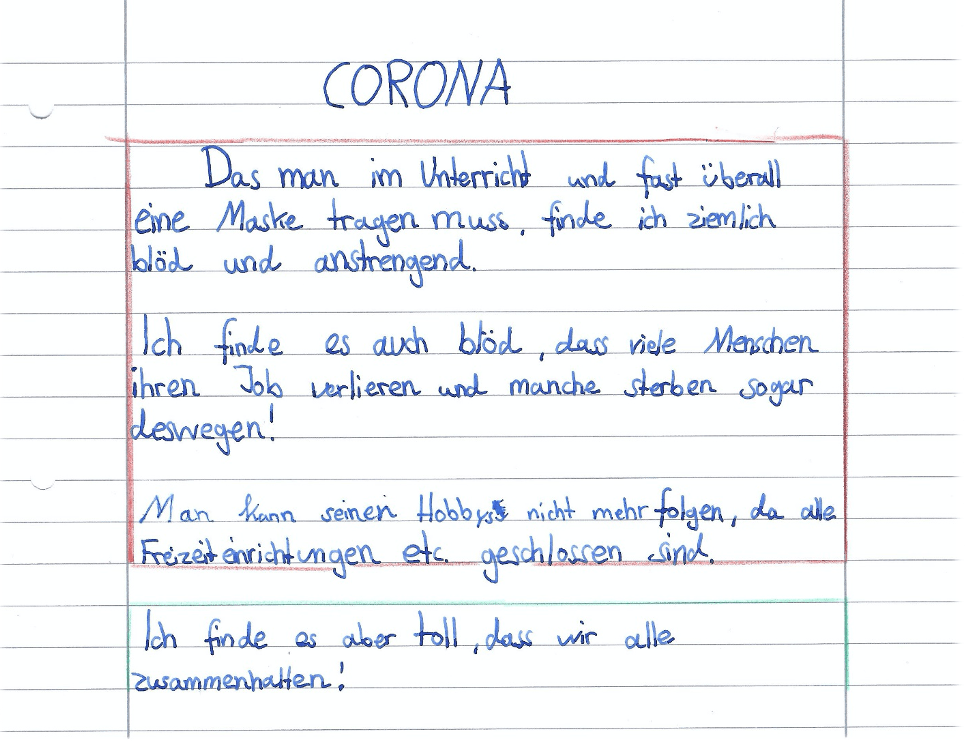 CORONA
Das man im Unterricht und fast überall
eine Maske tragen muss, finde ich ziemlich
blöd und anstrengend.
Ich finde es auch blöd, dass viele Menschen
ihren Job verlieren und manche sterben sogar
deswegen!
Man kann seinen Hobbys nicht mehr folgen, da alle
Freizeiteinrichtungen etc. geschlossen sind.
Ich finde es aber toll, dass wir alle
zusammenhalten!